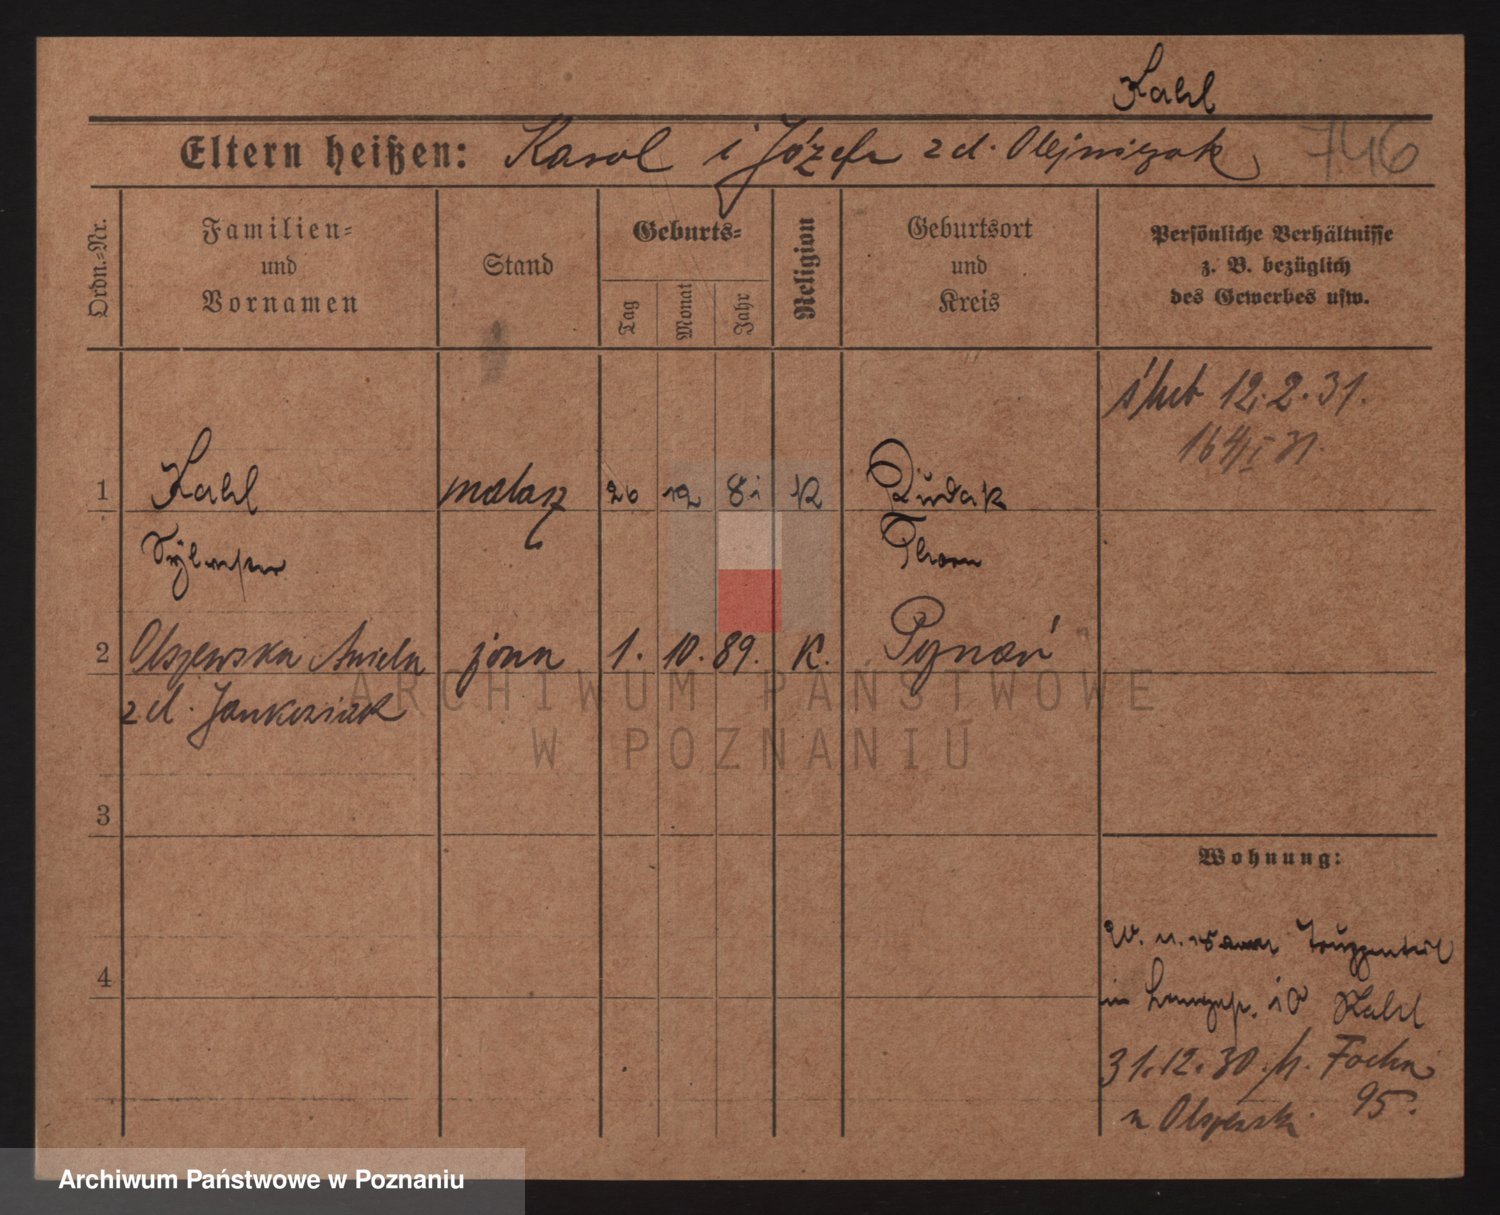 Kahl
Eltern heißen: Karol i Józefa z d. Olejniczak
746
Ordn.-Nr.
Familien-
und
Vornamen
Stand
Geburts-
Tag
Monat
Jahr
Religion
Geburtsort
und
Kreis
Persönliche Verhältnisse
z. B. bezüglich
des Gewerbes usw.
ślub 12.2.31.
1 Kahl malarz 26 12 81 K Rudak
Sylvester Thorn
2 Olszewska Aniela żona 1. 10. 89. K. Poznań
z d. Jankowiak
3
4
Wohnung:
Truppenteil
in 10 Kahl
31.12.30. Focha
95.
u Olszewski
ARCHIWUM PAŃSTWOWE
W POZNANIU
Archiwum Państwowe w Poznaniu